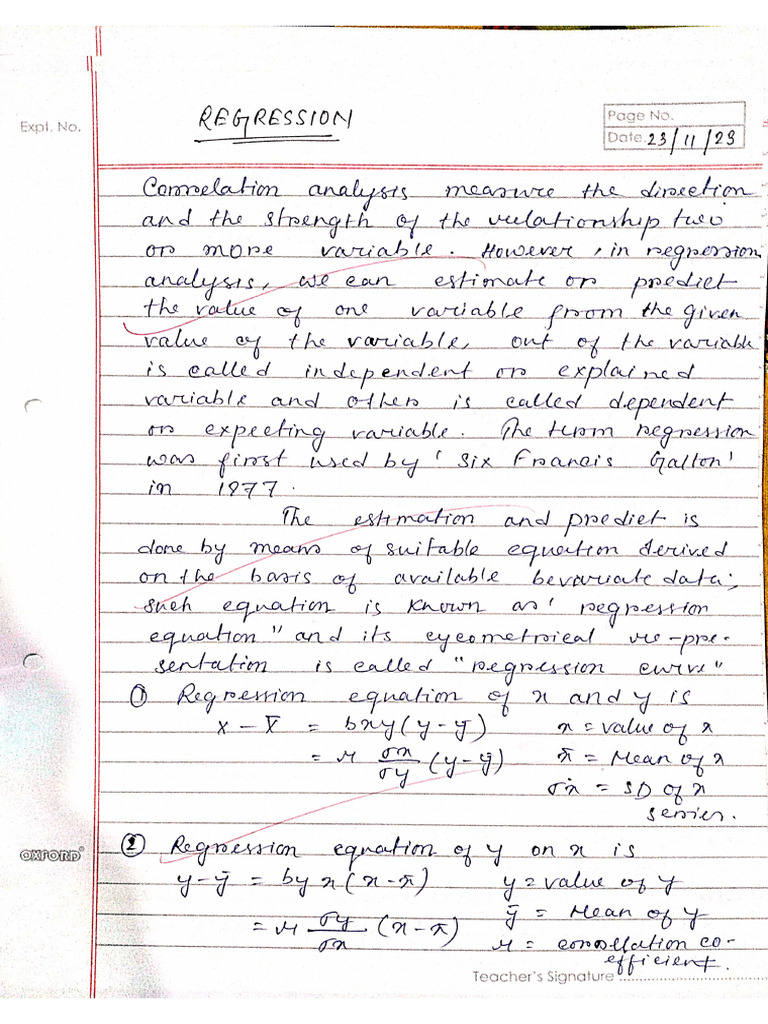 REGRESSION
Expt. No.
Page No.
Date 23/11/23
Correlation analysis measure the direction
and the strength of the relationship two
or more variable. However, in regression
analysis, we can estimate or predict
the value of one variable from the given
value of the variable, out of the variable
is called independent or explained
variable and others is called dependent
or expecting variable. The term regression
was first used by 'Six Francis Galton'
in 1877.
The estimation and predict is
done by means of suitable equation derived
on the basis of available bevariate data;
such equation is known as 'regression
equation" and its eyeometrical re-pre-
sentation is called "regression curve"
① Regression equation of x and y is
x - x̄ = bxy(y-ȳ) x = value of x
= r σx/σy (y-ȳ) x̄ = Mean of x
σx = SD of x
series.
② Regression equation of y on x is
y-ȳ = byx(x-x̄) y = value of y
= r σy/σx (x-x̄) ȳ = Mean of y
r = correllation co-
efficient.
OXFORD
Teacher's Signature